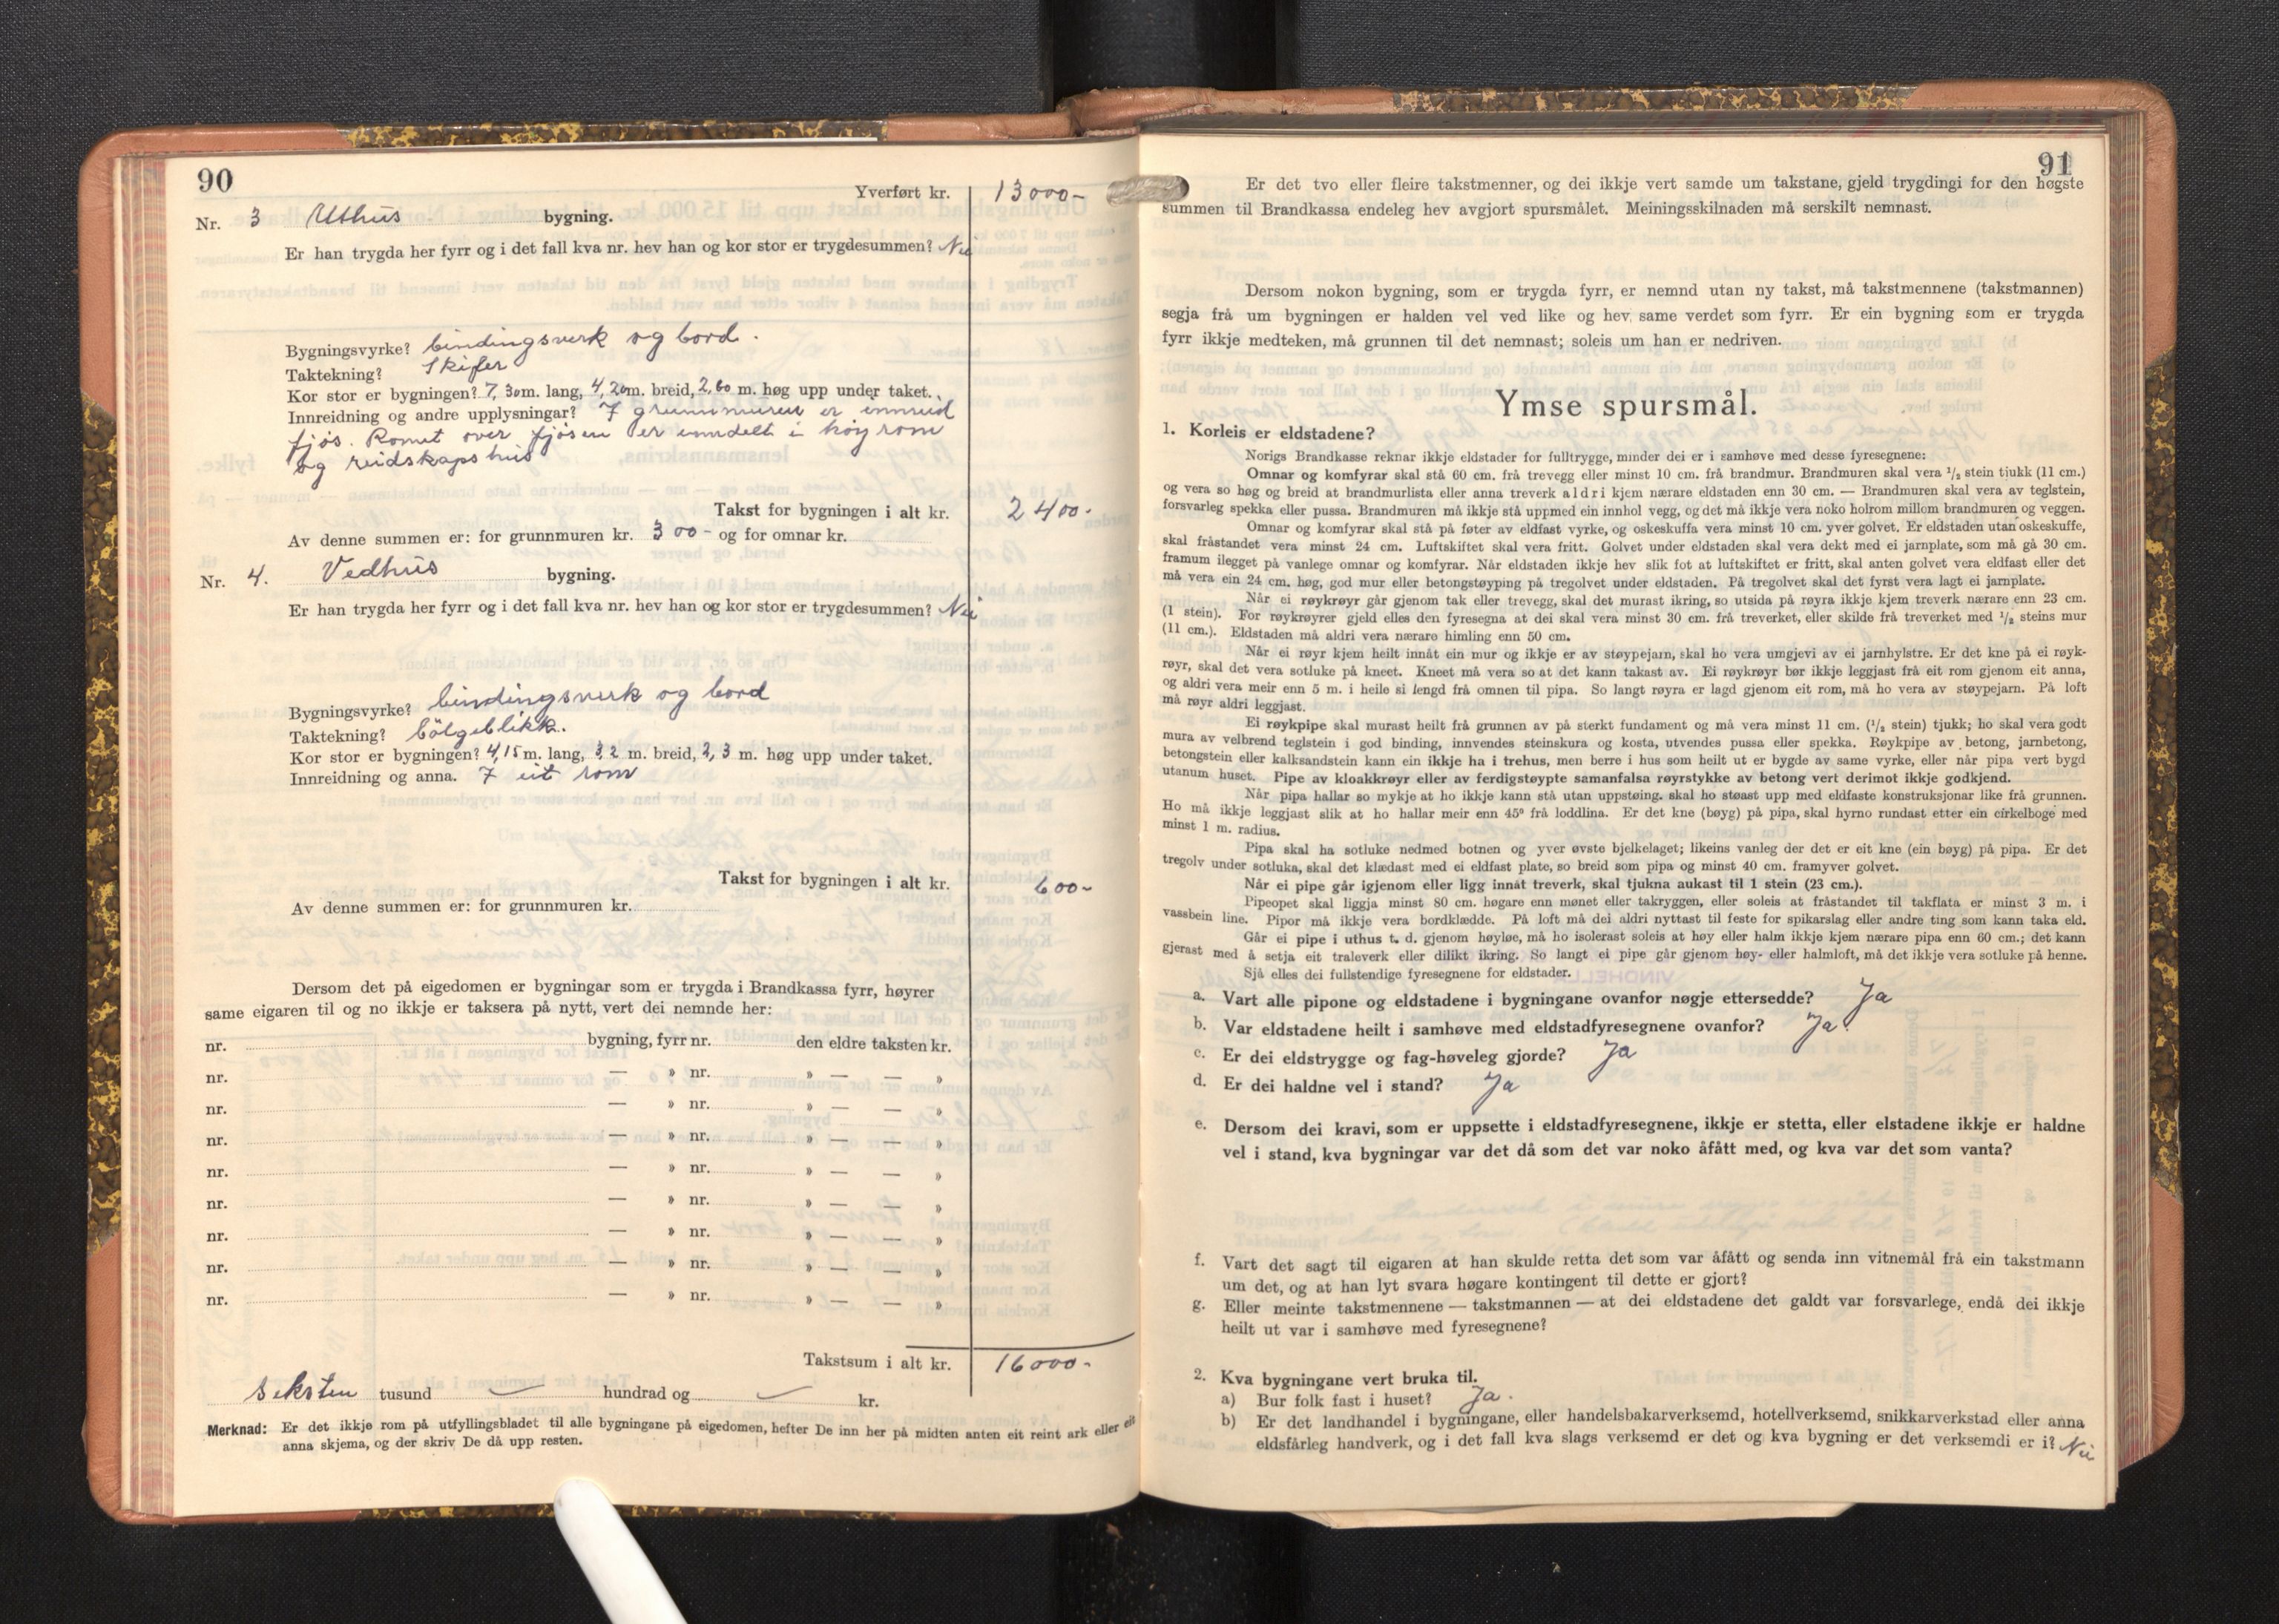 90
Yverført kr. 13000-
Nr. 3 Uthus bygning.
Er han trygda her fyrr og i det fall kva nr. hev han og kor stor er trygdesummen? Nei
Bygningsvyrke? bindingsverk og bord.
Taktekning? Skifer
Kor stor er bygningen? 7,30 m. lang, 4,20 m. breid, 2,60 m. høg upp under taket.
Innreidning og andre upplysningar? I grunnmuren er innreid
fjøs. Romet over fjøsen er inndelt i høy rom
og reidskapshus
Takst for bygningen i alt kr. 2400-
Av denne summen er: for grunnmuren kr. 300- og for omnar kr.
Nr. 4. Vedhus bygning.
Er han trygda her fyrr og i det fall kva nr. hev han og kor stor er trygdesummen? Nei
Bygningsvyrke? bindingsverk og bord
Taktekning? bölgeblikk.
Kor stor er bygningen? 4,15 m. lang, 3,2 m. breid, 2,3 m. høg upp under taket.
Innreidning og anna. I eit rom
Takst for bygningen i alt kr. 600-
Av denne summen er: for grunnmuren kr.
Dersom det på eigedomen er bygningar som er trygda i Brandkassa fyrr, høyrer
same eigaren til og no ikkje er taksera på nytt, vert dei nemnde her:
nr. bygning, fyrr nr. den eldre taksten kr.
nr. — » nr. » — — »
nr. — » nr. » — — »
nr. — » nr. » — — »
nr. — » nr. » — — »
nr. — » nr. » — — »
nr. — » nr. » — — »
nr. — » nr. » — — »
nr. — » nr. » — — »
Takstsum i alt kr. 16000-
seksten tusund hundrad og kr.
Merknad: Er det ikkje rom på utfyllingsbladet til alle bygningane på eigedomen, hefter De inn her på midten anten eit reint ark eller eit
anna skjema, og der skriv De då upp resten.
91
Er det tvo eller fleire takstmenner, og dei ikkje vert samde um takstane, gjeld trygdingi for den høgste
summen til Brandkassa endeleg hev avgjort spursmålet. Meiningsskilnaden må serskilt nemnast.
Dersom nokon bygning, som er trygda fyrr, er nemnd utan ny takst, må takstmennene (takstmannen)
segja frå um bygningen er halden vel ved like og hev same verdet som fyrr. Er ein bygning som er trygda
fyrr ikkje medteken, må grunnen til det nemnast; soleis um han er nedriven.
Ymse spursmål.
1. Korleis er eldstadene?
Norigs Brandkasse reknar ikkje eldstader for fulltrygge, minder dei er i samhøve med desse fyresegnene:
Omnar og komfyrar skal stå 60 cm. frå trevegg eller minst 10 cm. frå brandmur. Brandmuren skal vera ½ stein tjukk (11 cm.)
og vera so høg og breid at brandmurlista eller anna treverk aldri kjem nærare eldstaden enn 30 cm. — Brandmuren skal vera av teglstein,
forsvarleg spekka eller pussa. Brandmuren må ikkje stå uppmed ein innhol vegg, og det må ikkje vera noko holrom millom brandmuren og veggen.
Omnar og komfyrar skal stå på føter av eldfast vyrke, og oskeskuffa vera minst 10 cm. yver golvet. Er eldstaden utan oskeskuffe,
skal fråstandet vera minst 24 cm. Luftskiftet skal vera fritt. Golvet under eldstaden skal vera dekt med ei jarnplate, som må gå 30 cm.
framum ilegget på vanlege omnar og komfyrar. Når eldstaden ikkje hev slik fot at luftskiftet er fritt, skal anten golvet vera eldfast eller det
må vera ein 24 cm. høg, god mur eller betongstøyping på tregolvet under eldstaden. På tregolvet skal det fyrst vera lagt ei jarnplate.
Når ei røykrøyr går gjenom tak eller trevegg, skal det murast ikring, so utsida på røyra ikkje kjem treverk nærare enn 23 cm.
(1 stein). For røykrøyrer gjeld elles den fyresegna at dei skal vera minst 30 cm. frå treverket, eller skilde frå treverket med ½ steins mur
(11 cm.). Eldstaden må aldri vera nærare himling enn 50 cm.
Når ei røyr kjem heilt innåt ein mur og ikkje er av støypejarn, skal ho vera umgjevi av ei jarnhylstre. Er det kne på ei røyk-
røyr, skal det vera sotluke på kneet. Kneet må vera so at det kann takast av. Ei røykrøyr bør ikkje leggjast frå eit rom gjenom eit anna,
og aldri vera meir enn 5 m. i heile si lengd frå omnen til pipa. So langt røyra er lagd gjenom eit rom, må ho vera av støypejarn. På loft
må røyr aldri leggjast.
Ei røykpipe skal murast heilt frå grunnen av på sterkt fundament og må vera minst 11 cm. (½ stein) tjukk; ho skal vera godt
mura av velbrend teglstein i god binding, innvendes steinskura og kosta, utvendes pussa eller spekka. Røykpipe av betong, jarnbetong,
betongstein eller kalksandstein kann ein ikkje ha i trehus, men berre i hus som heilt ut er bygde av same vyrke, eller når pipa vert bygd
utanum huset. Pipe av kloakkrøyr eller av ferdigstøypte samanfalsa røyrstykke av betong vert derimot ikkje godkjend.
Når pipa hallar so mykje at ho ikkje kann stå utan uppstøing. skal ho støast upp med eldfaste konstruksjonar like frå grunnen.
Ho må ikkje leggjast slik at ho hallar meir enn 45° frå loddlina. Er det kne (bøyg) på pipa, skal hyrno rundast etter ein cirkelboge med
minst 1 m. radius.
Pipa skal ha sotluke nedmed botnen og yver øvste bjelkelaget; likeins vanleg der det er eit kne (ein bøyg) på pipa. Er det
tregolv under sotluka, skal det klædast med ei eldfast plate, so breid som pipa og minst 40 cm. framyver golvet.
Når ei pipe går igjenom eller ligg innåt treverk, skal tjukna aukast til 1 stein (23 cm.).
Pipeopet skal liggja minst 80 cm. høgare enn mønet eller takryggen, eller soleis at fråstandet til takflata er minst 3 m. i
vassbein line. Pipor må ikkje vera bordklædde. På loft må dei aldri nyttast til feste for spikarslag eller andre ting som kann taka eld.
Går ei pipe i uthus t. d. gjenom høyløe, må ho isolerast soleis at høy eller halm ikkje kjem nærare pipa enn 60 cm.; det kann
gjerast med å setja eit traleverk eller dilikt ikring. So langt ei pipe går gjenom høy- eller halmloft, må det ikkje vera sotluke på henne.
Sjå elles dei fullstendige fyresegnene for eldstader.
a. Vart alle pipone og eldstadene i bygningane ovanfor nøgje ettersedde? Ja
b. Var eldstadene heilt i samhøve med eldstadfyresegnene ovanfor? Ja
c. Er dei eldstrygge og fag-høveleg gjorde? Ja
d. Er dei haldne vel i stand? Ja
e. Dersom dei kravi, som er uppsette i eldstadfyresegnene, ikkje er stetta, eller elstadene ikkje er haldne
vel i stand, kva bygningar var det då som det var noko åfått med, og kva var det som vanta?
f. Vart det sagt til eigaren at han skulde retta det som var åfått og senda inn vitnemål frå ein takstmann
um det, og at han lyt svara høgare kontingent til dette er gjort?
g. Eller meinte takstmennene — takstmannen — at dei eldstadene det galdt var forsvarlege, endå dei ikkje
heilt ut var i samhøve med fyresegnene?
2. Kva bygningane vert bruka til.
a) Bur folk fast i huset? Ja.
b) Er det landhandel i bygningane, eller handelsbakarverksemd, hotellverksemd, snikkarverkstad eller anna
eldsfårleg handverk, og i det fall kva slags verksemd er det og kva bygning er det verksemdi er i? Nei